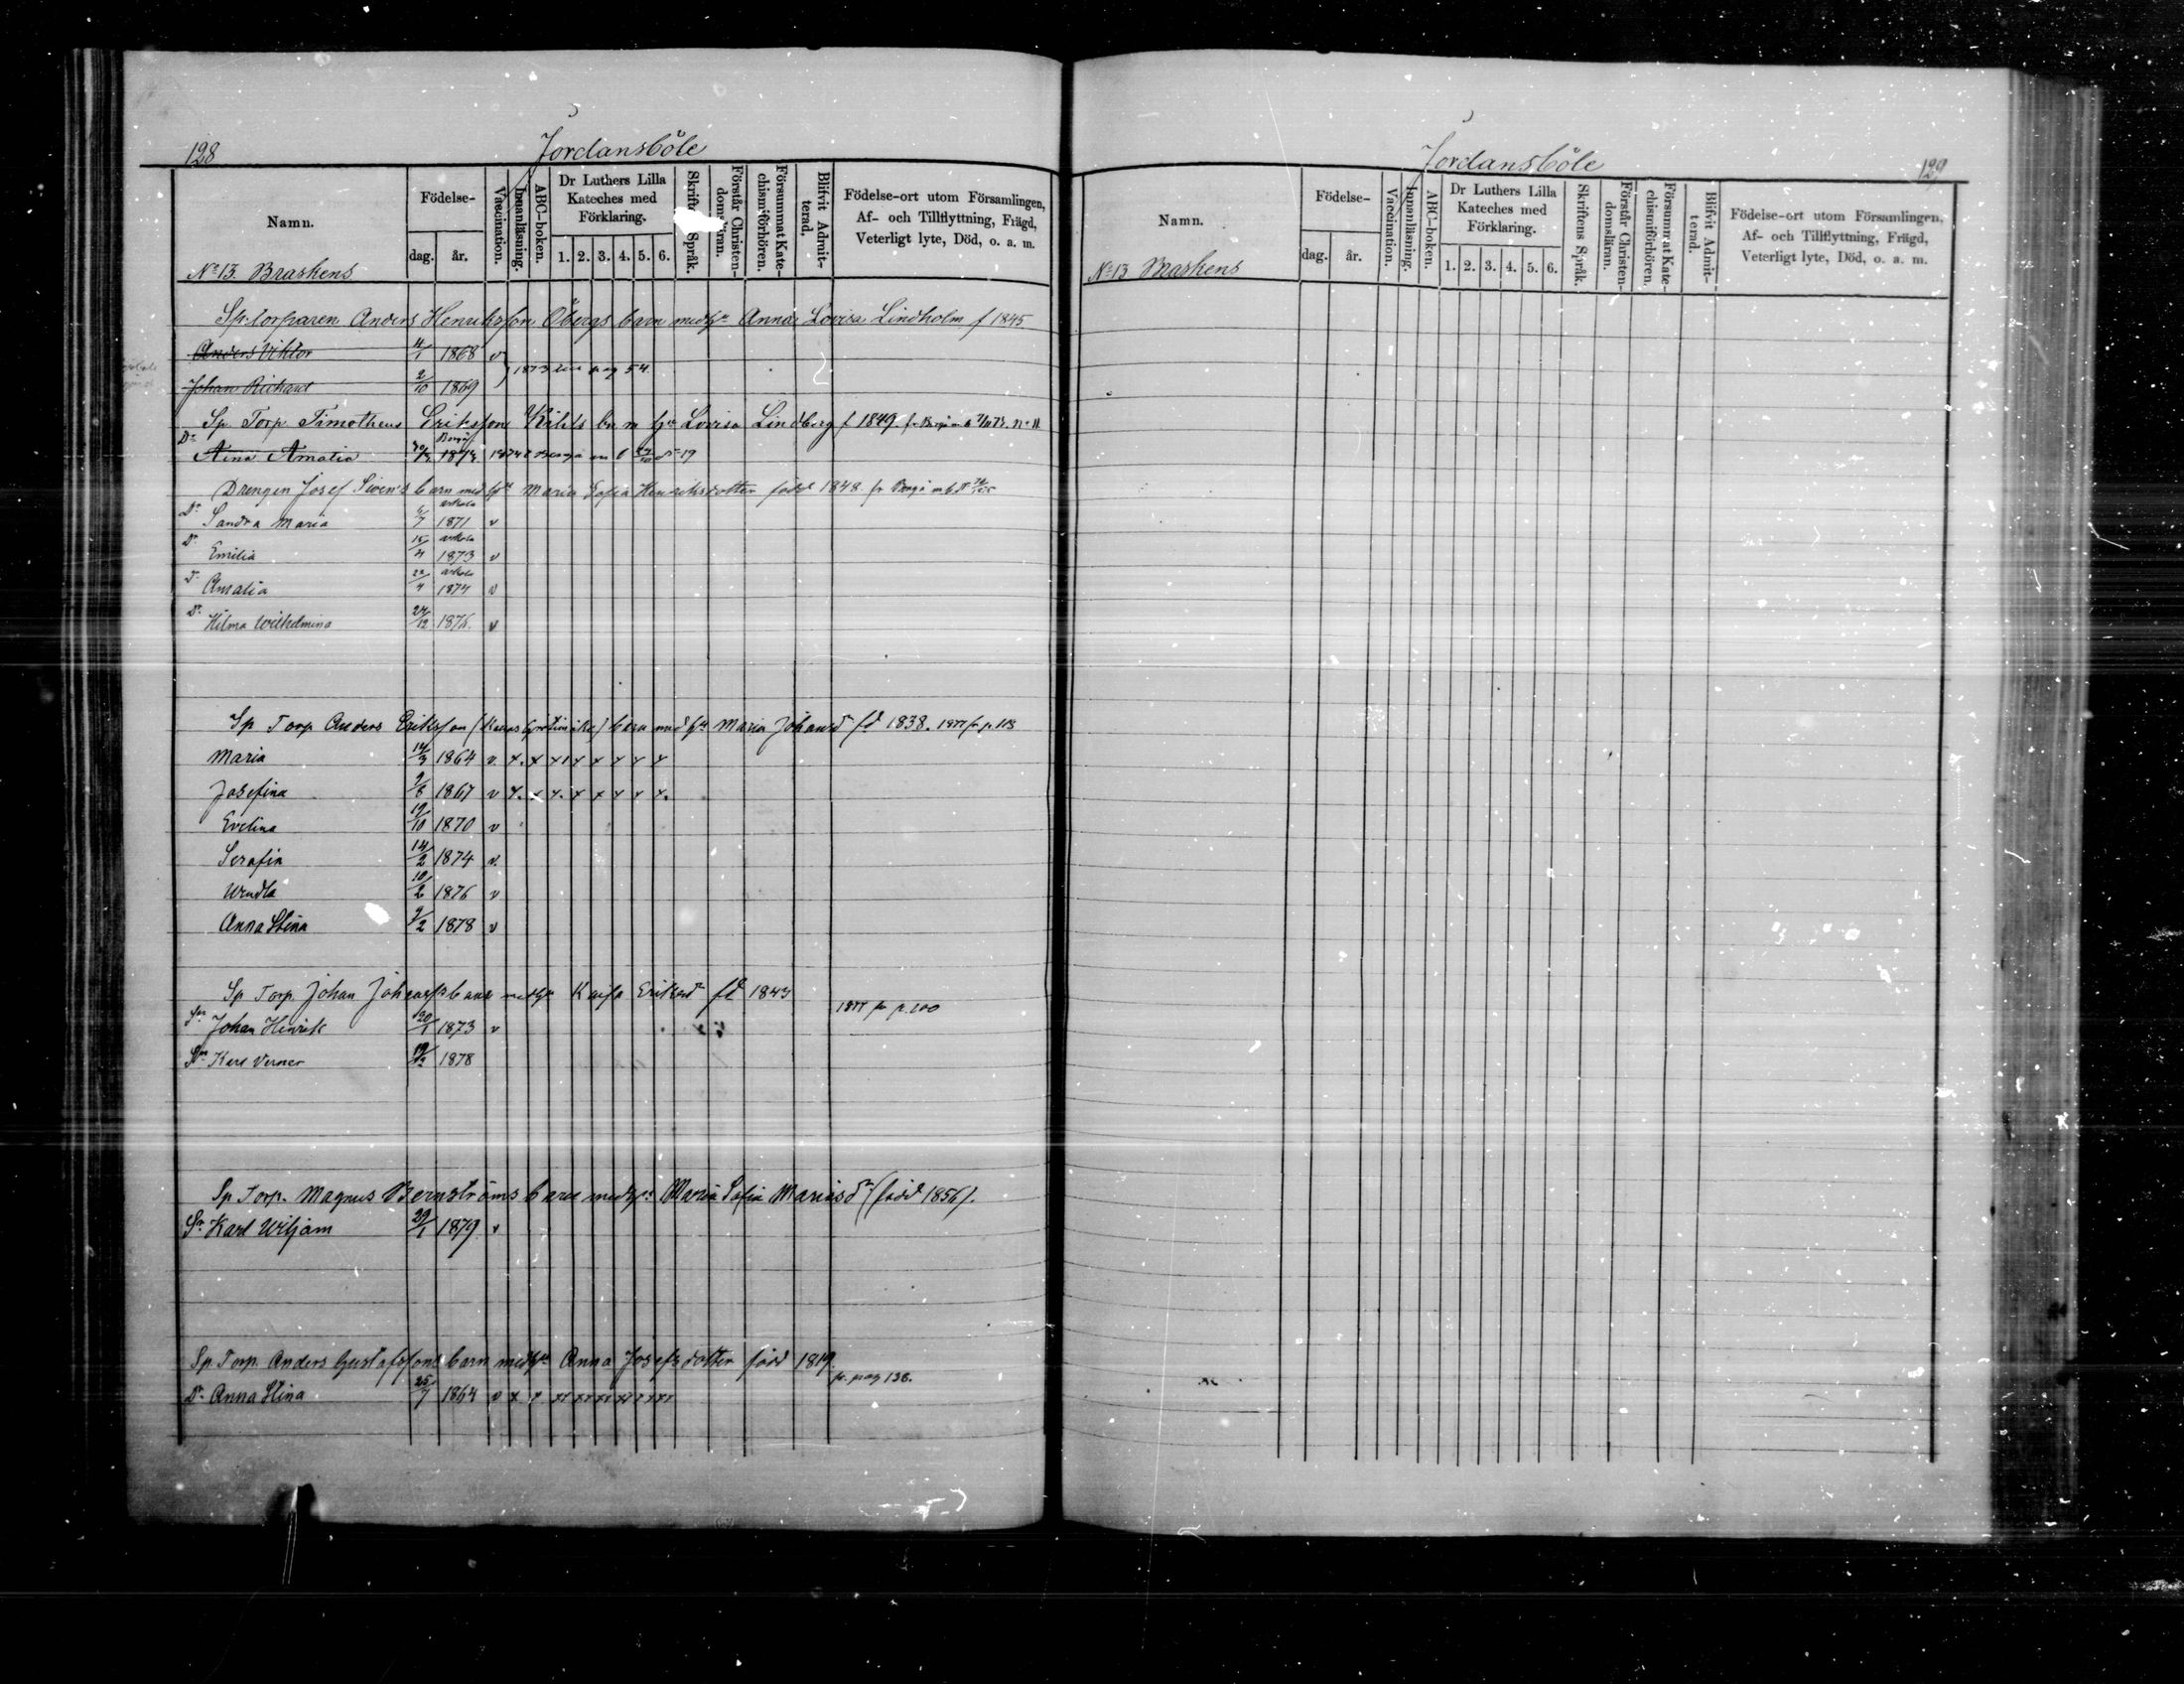 128
Jordansböle
Namn.
Födelse-
dag. år.
Vaccination.
Innanläsning.
ABC-boken.
Dr Luthers Lilla Kateches med Förklaring.
1. 2. 3. 4. 5. 6.
Skrift Språk.
Förstår Christen-dom ran.
Försummat Kate-chismiförhören.
Blifvit Admit-terad.
Födelse-ort utom Församlingen,
Af- och Tillflyttning, Frägd,
Veterligt lyte, Död, o. a. m.
No 13. Braskens
Sp. torparen Anders Henriksson Öbergs barn med hu Anna Lovisa Lindholm f 1845
Anders Viktor 11/1 1868 v
1873 pag 54
Johan Richard 2/10 1869
Sp Torp Timotheus Eriksson barn hu Lovisa Lindberg f 1849. fr Borgå No 11
Dr Aina Amalia 1873 Borgå
Drengen Josef barn med hu Maria Sofia Henriksdotter född 1848 fr Borgå
Dr Sandra Maria 6/7 1871 v
Dr Emilia 15/4 1873 v
Dr Amalia 22/4 1874 v
Dr Hilma Wilhelmina 24/12 1876. v
Sp Torp Anders Eriksson barn med hu Maria Johansdr fd 1838. 1877 fr p. 113
Maria 14/3 1864 v. x. x x x x x x x
Josefina 9/8 1867 v x. x x. x x x x x.
Evelina 19/10 1870 v
Serafia 14/2 1874 v.
Wendla 10/2 1876 v
Anna Stina 9/2 1878 v
Sp Torp. Johan Johanss barn med hu Kajsa Eriksdr fd 1843
1877 fr p. 100
Sn Johan Henrik 20/1 1873 v
Sn Karl Verner 19/2 1878
Sp Torp. Magnus Bernströms barn med hu Maria Sofia Mariasdr (född 1856).
Sn Karl Wiljam 29/1 1879 v
Sp Torp. Anders Gustafssons barn med hu Anna Josefsdotter född 1819.
fr. pag 136.
Dr Anna Stina 25/7 1864 v x x xx xx xx xx x xx
Jordansböle
129
Namn.
Födelse-
dag. år.
Vaccination.
Innanläsning.
ABC-boken.
Dr Luthers Lilla Kateches med Förklaring.
1. 2. 3. 4. 5. 6.
Skriftens Språk.
Förstår Christen-domsläran.
Försummat Kate-chismiförhören.
Blifvit Admit-terad.
Födelse-ort utom Församlingen,
Af- och Tillflyttning, Frägd,
Veterligt lyte, Död, o. a. m.
No 13 Braskens